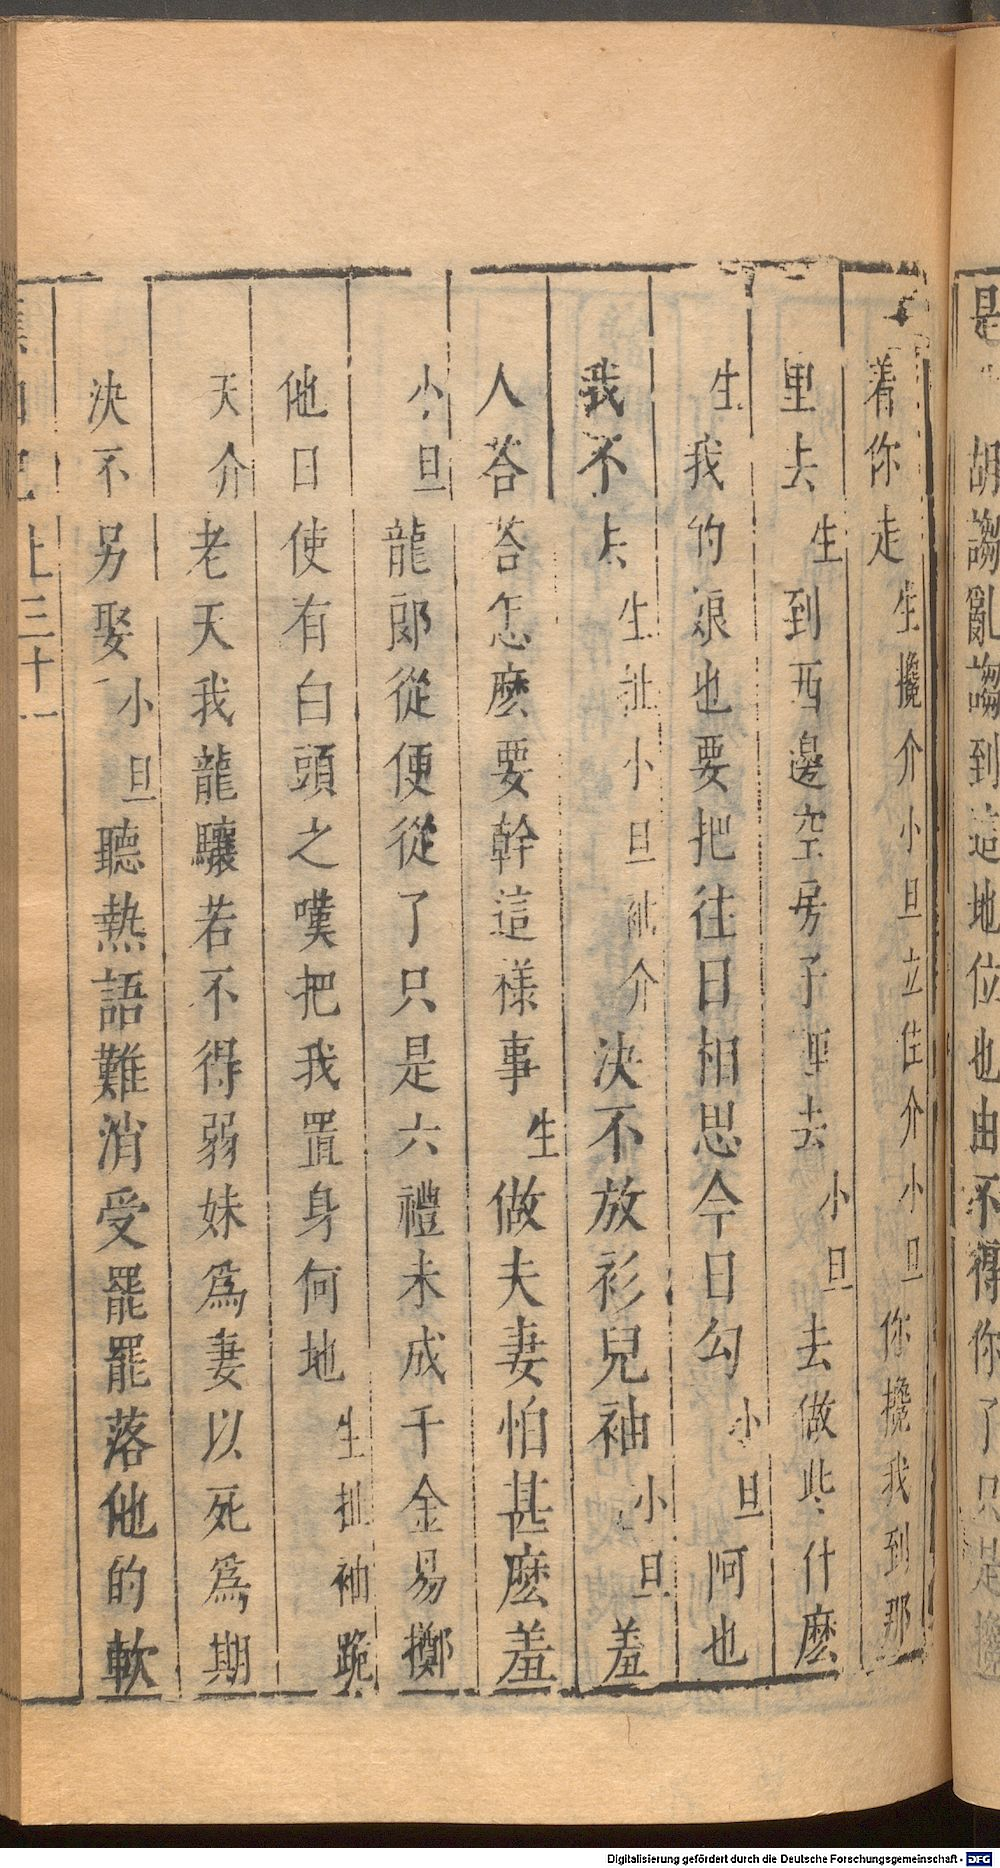 是 胡謅亂謅到這地位也由不得你了只是攙
着你走生攙介小旦立住介小旦你攙我到那
里去生到西邊空房子里去小旦去做些什麽
生我的娘也要把往日相思今日勾小旦阿也
我不去生扯小旦袖介決不放衫兒袖小旦羞
人荅荅怎麽要幹這樣事生做夫妻怕甚麽羞
小旦龍郎從便從了只是六禮未成千金易擲
他日使有白頭之嘆把我置身何地生扯袖跪
天介老天我龍驤若不得弱妹爲妻以死爲期
決不另娶小旦聽熱語難消受罷罷落他的軟
上 三十一
Digitalisierung gefördert durch die Deutsche Forschungsgemeinschaft - DFG